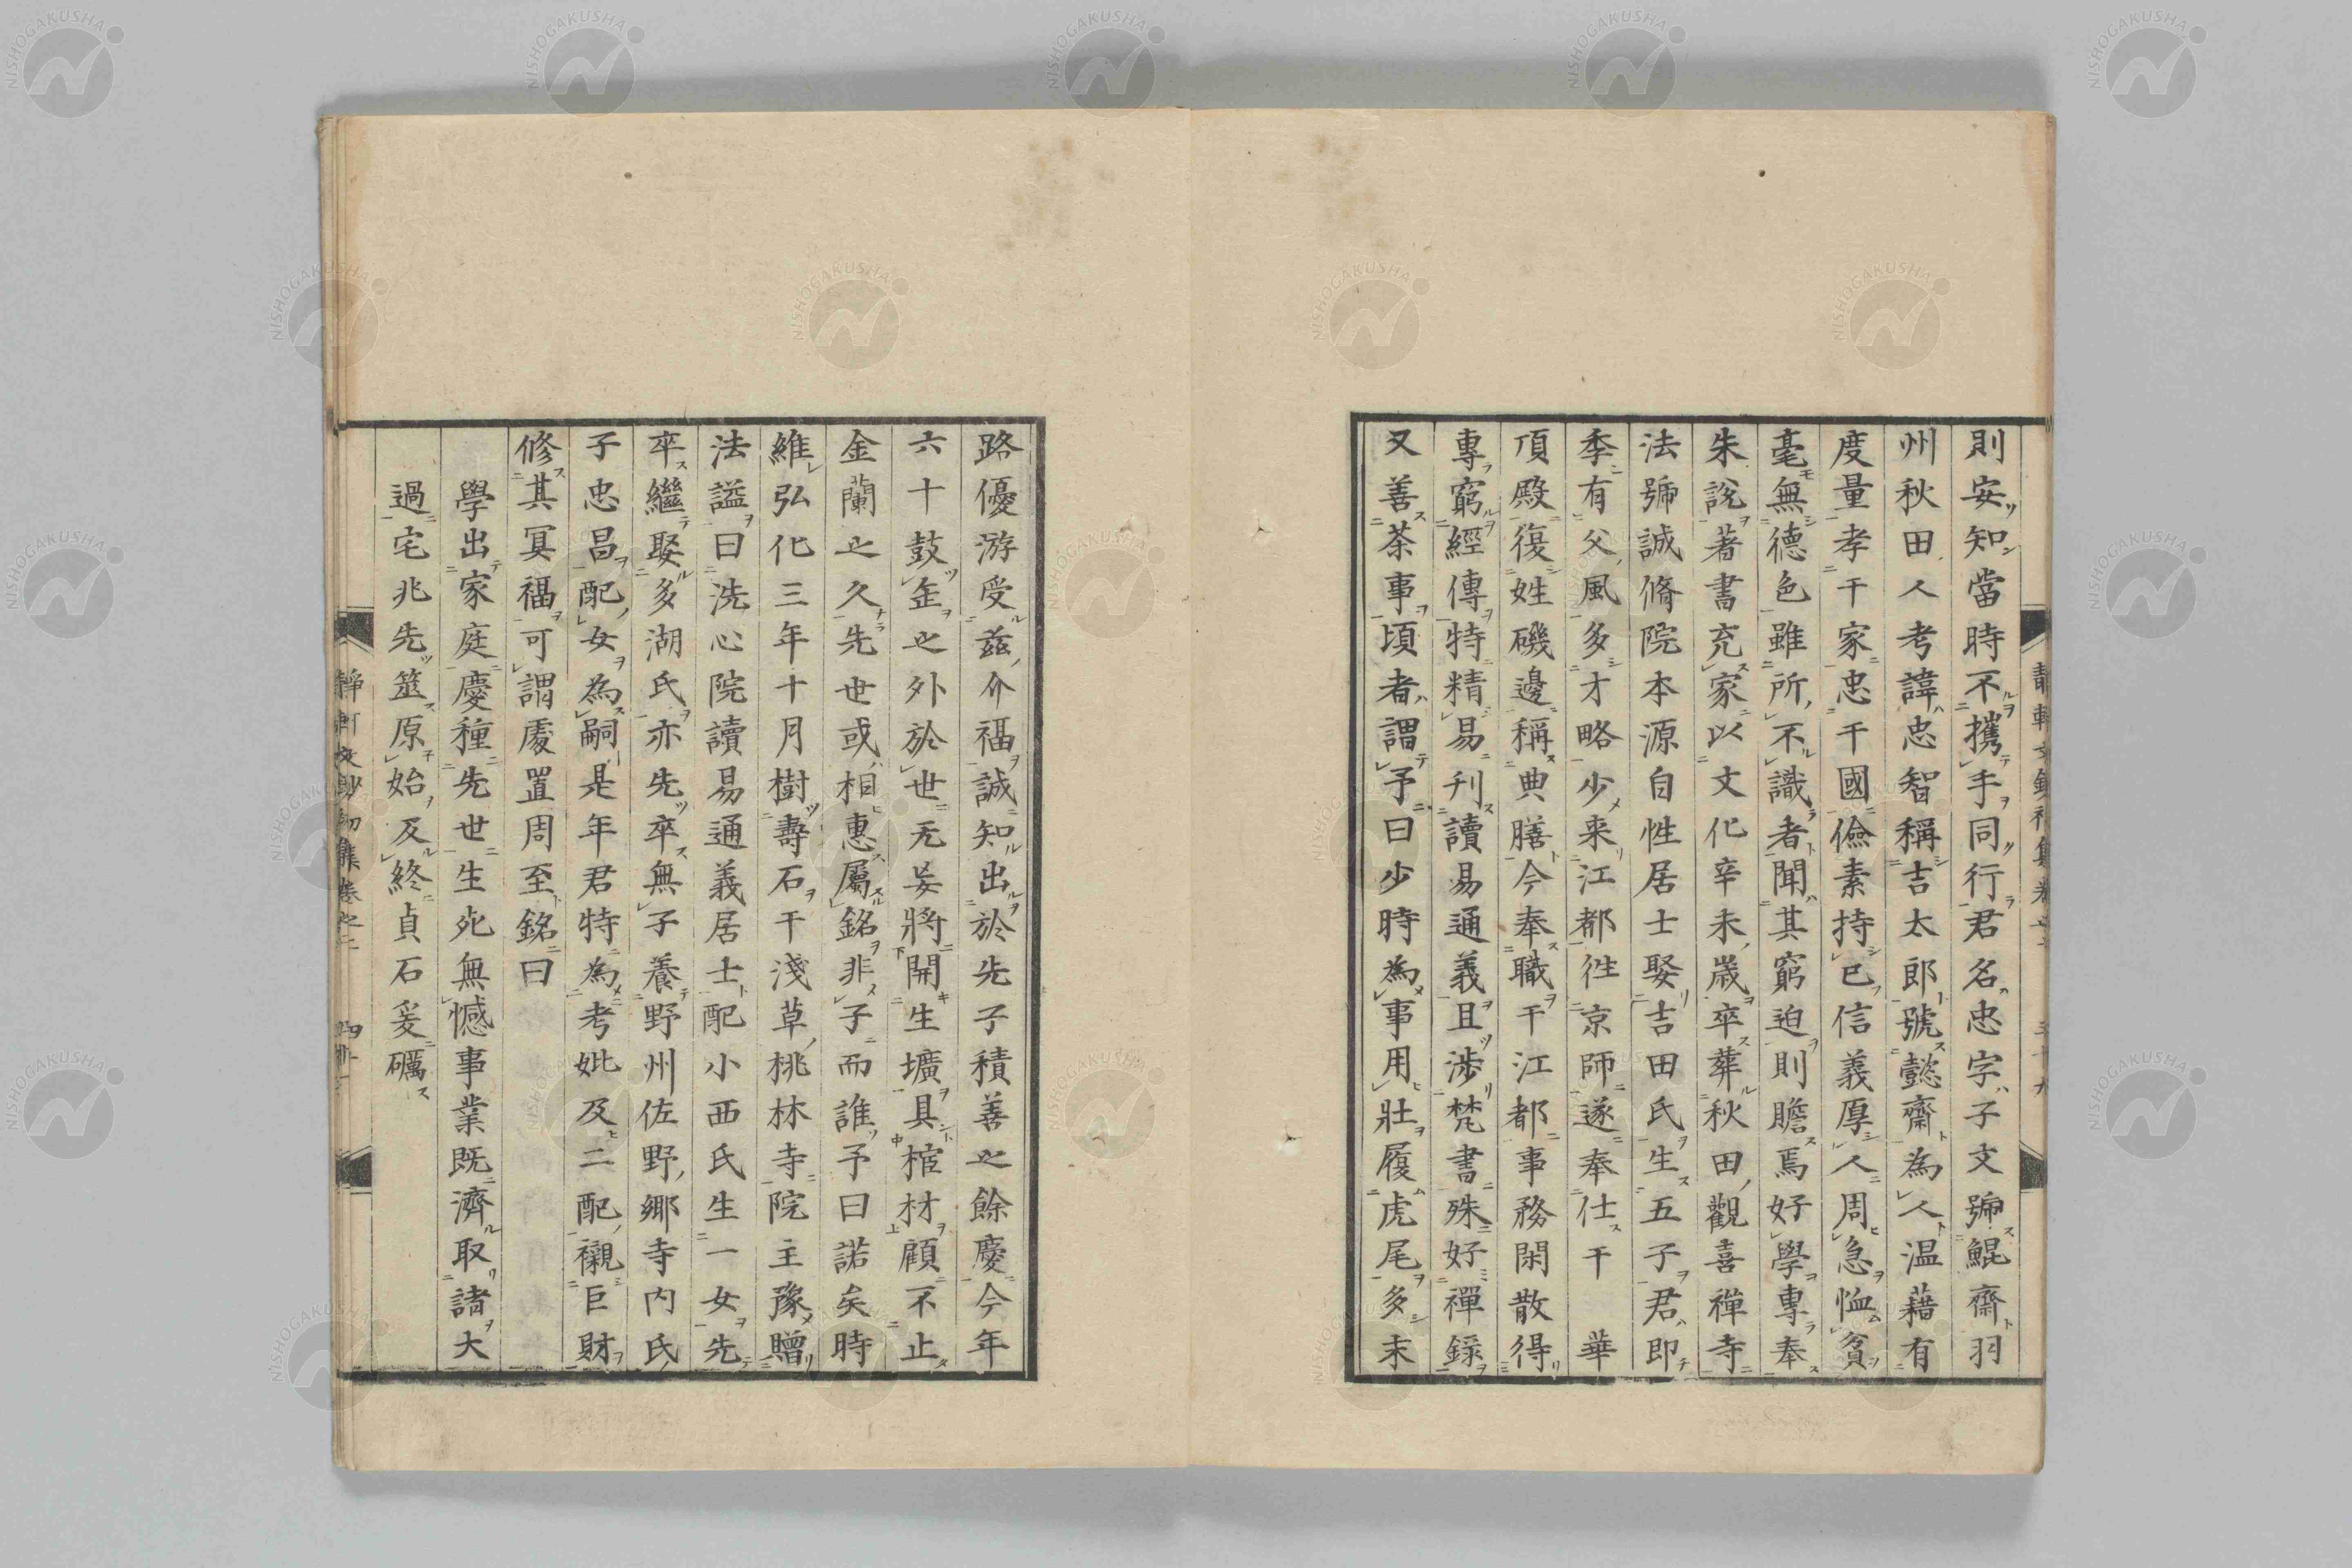 則安知當時不攜手同行君名忠字子文號鯤齋羽
州秋田人考諱忠智稱吉太郎號懿齋為人温藉有
度量孝于家忠于國儉素持已信義厚人周急恤貧
毫無德色雖所不識者聞其窮迫則贍焉好學專奉
朱說著書充家以文化辛未歲卒葬秋田觀喜禪寺
法號誠脩院本源自性居士娶吉田氏生五子君即
季有父風多才略少来江都徃京師遂奉仕于 華
頂殿復姓磯邊稱典膳今奉職于江都事務閑散得
專窮經傳特精易刊讀易通義且涉梵書殊好禪錄
又善茶事頃者謂予曰少時為事用壯履虎尾多末
路優游受茲介福誠知出於先子積善之餘慶今年
六十鼓缶之外於世无妄將開生壙具棺材顧不止
金蘭之久先世或相惠屬銘非子而誰予曰諾矣時
維弘化三年十月樹壽石于淺草桃林寺院主豫贈
法謚曰洗心院讀易通義居士配小西氏生一女先
卒繼娶多湖氏亦先卒無子養野州佐野鄉寺内氏
子忠昌配女為嗣是年君特為考妣及二配襯巨財
修其冥福可謂處置周至銘曰
學出家庭慶種先世生死無憾事業既濟取諸大
過宅兆先筮原始及終貞石爰礪
靜軒文鈔初集卷之二
四十
NISHOGAKUSHA